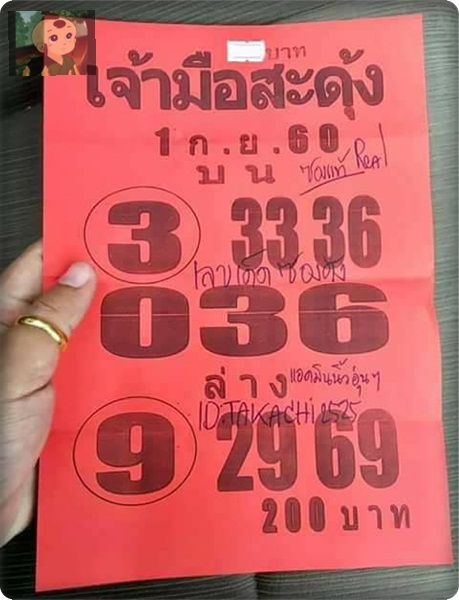 บาท
เจ้ามือสะดุ้ง
1 ก.ย.60
บน
ซองแท้ Real
3 33 36
เลขเด็ดซองดัง
036
ล่าง
แอดมินนิ้วอุ่นๆ
ID:TAKACHI2525
9 29 69
200 บาท